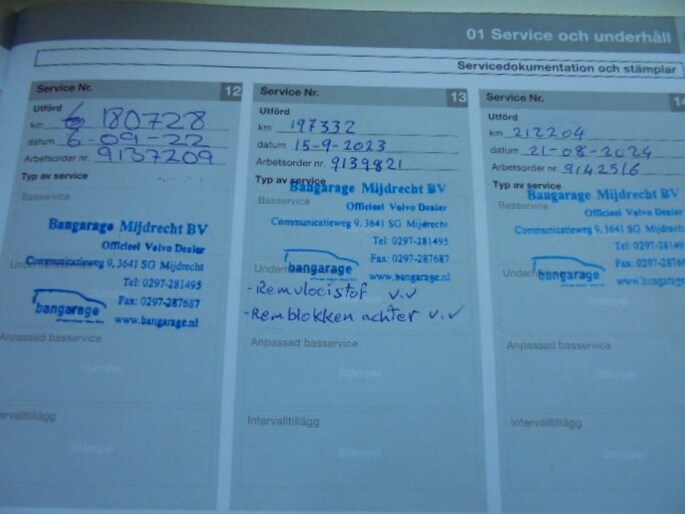 01 Service och underhåll
Servicedokumentation och stämplar
Service Nr. 12
Utförd
km 180728
datum 6-09-22
Arbetsorder nr. 9137209
Typ av service
Basservice
Bangarage Mijdrecht BV
Officieel Volvo Dealer
Communicatieweg 9, 3641 SG Mijdrecht
Tel: 0297-281495
Fax: 0297-287687
bangarage
www.bangarage.nl
Anpassad basservice
Stämpel
Intervalltillägg
Stämpel
Service Nr. 13
Utförd
km 197332
datum 15-9-2023
Arbetsorder nr. 9139821
Typ av service
Basservice
Bangarage Mijdrecht BV
Officieel Volvo Dealer
Communicatieweg 9, 3641 SG Mijdrecht
Tel: 0297-281495
Fax: 0297-287687
bangarage
www.bangarage.nl
- Remvloeistof v.v
- Remblokken achter v.v
Anpassad basservice
Stämpel
Intervalltillägg
Stämpel
Service Nr. 14
Utförd
km 212204
datum 21-08-2024
Arbetsorder nr. 9142516
Typ av service
Basservice
Bangarage Mijdrecht BV
Officieel Volvo Dealer
Communicatieweg 9, 3641 SG Mijdrecht
Tel: 0297-281495
Fax: 0297-287687
bangarage
www.bangarage.nl
Anpassad basservice
Stämpel
Intervalltillägg
Stämpel